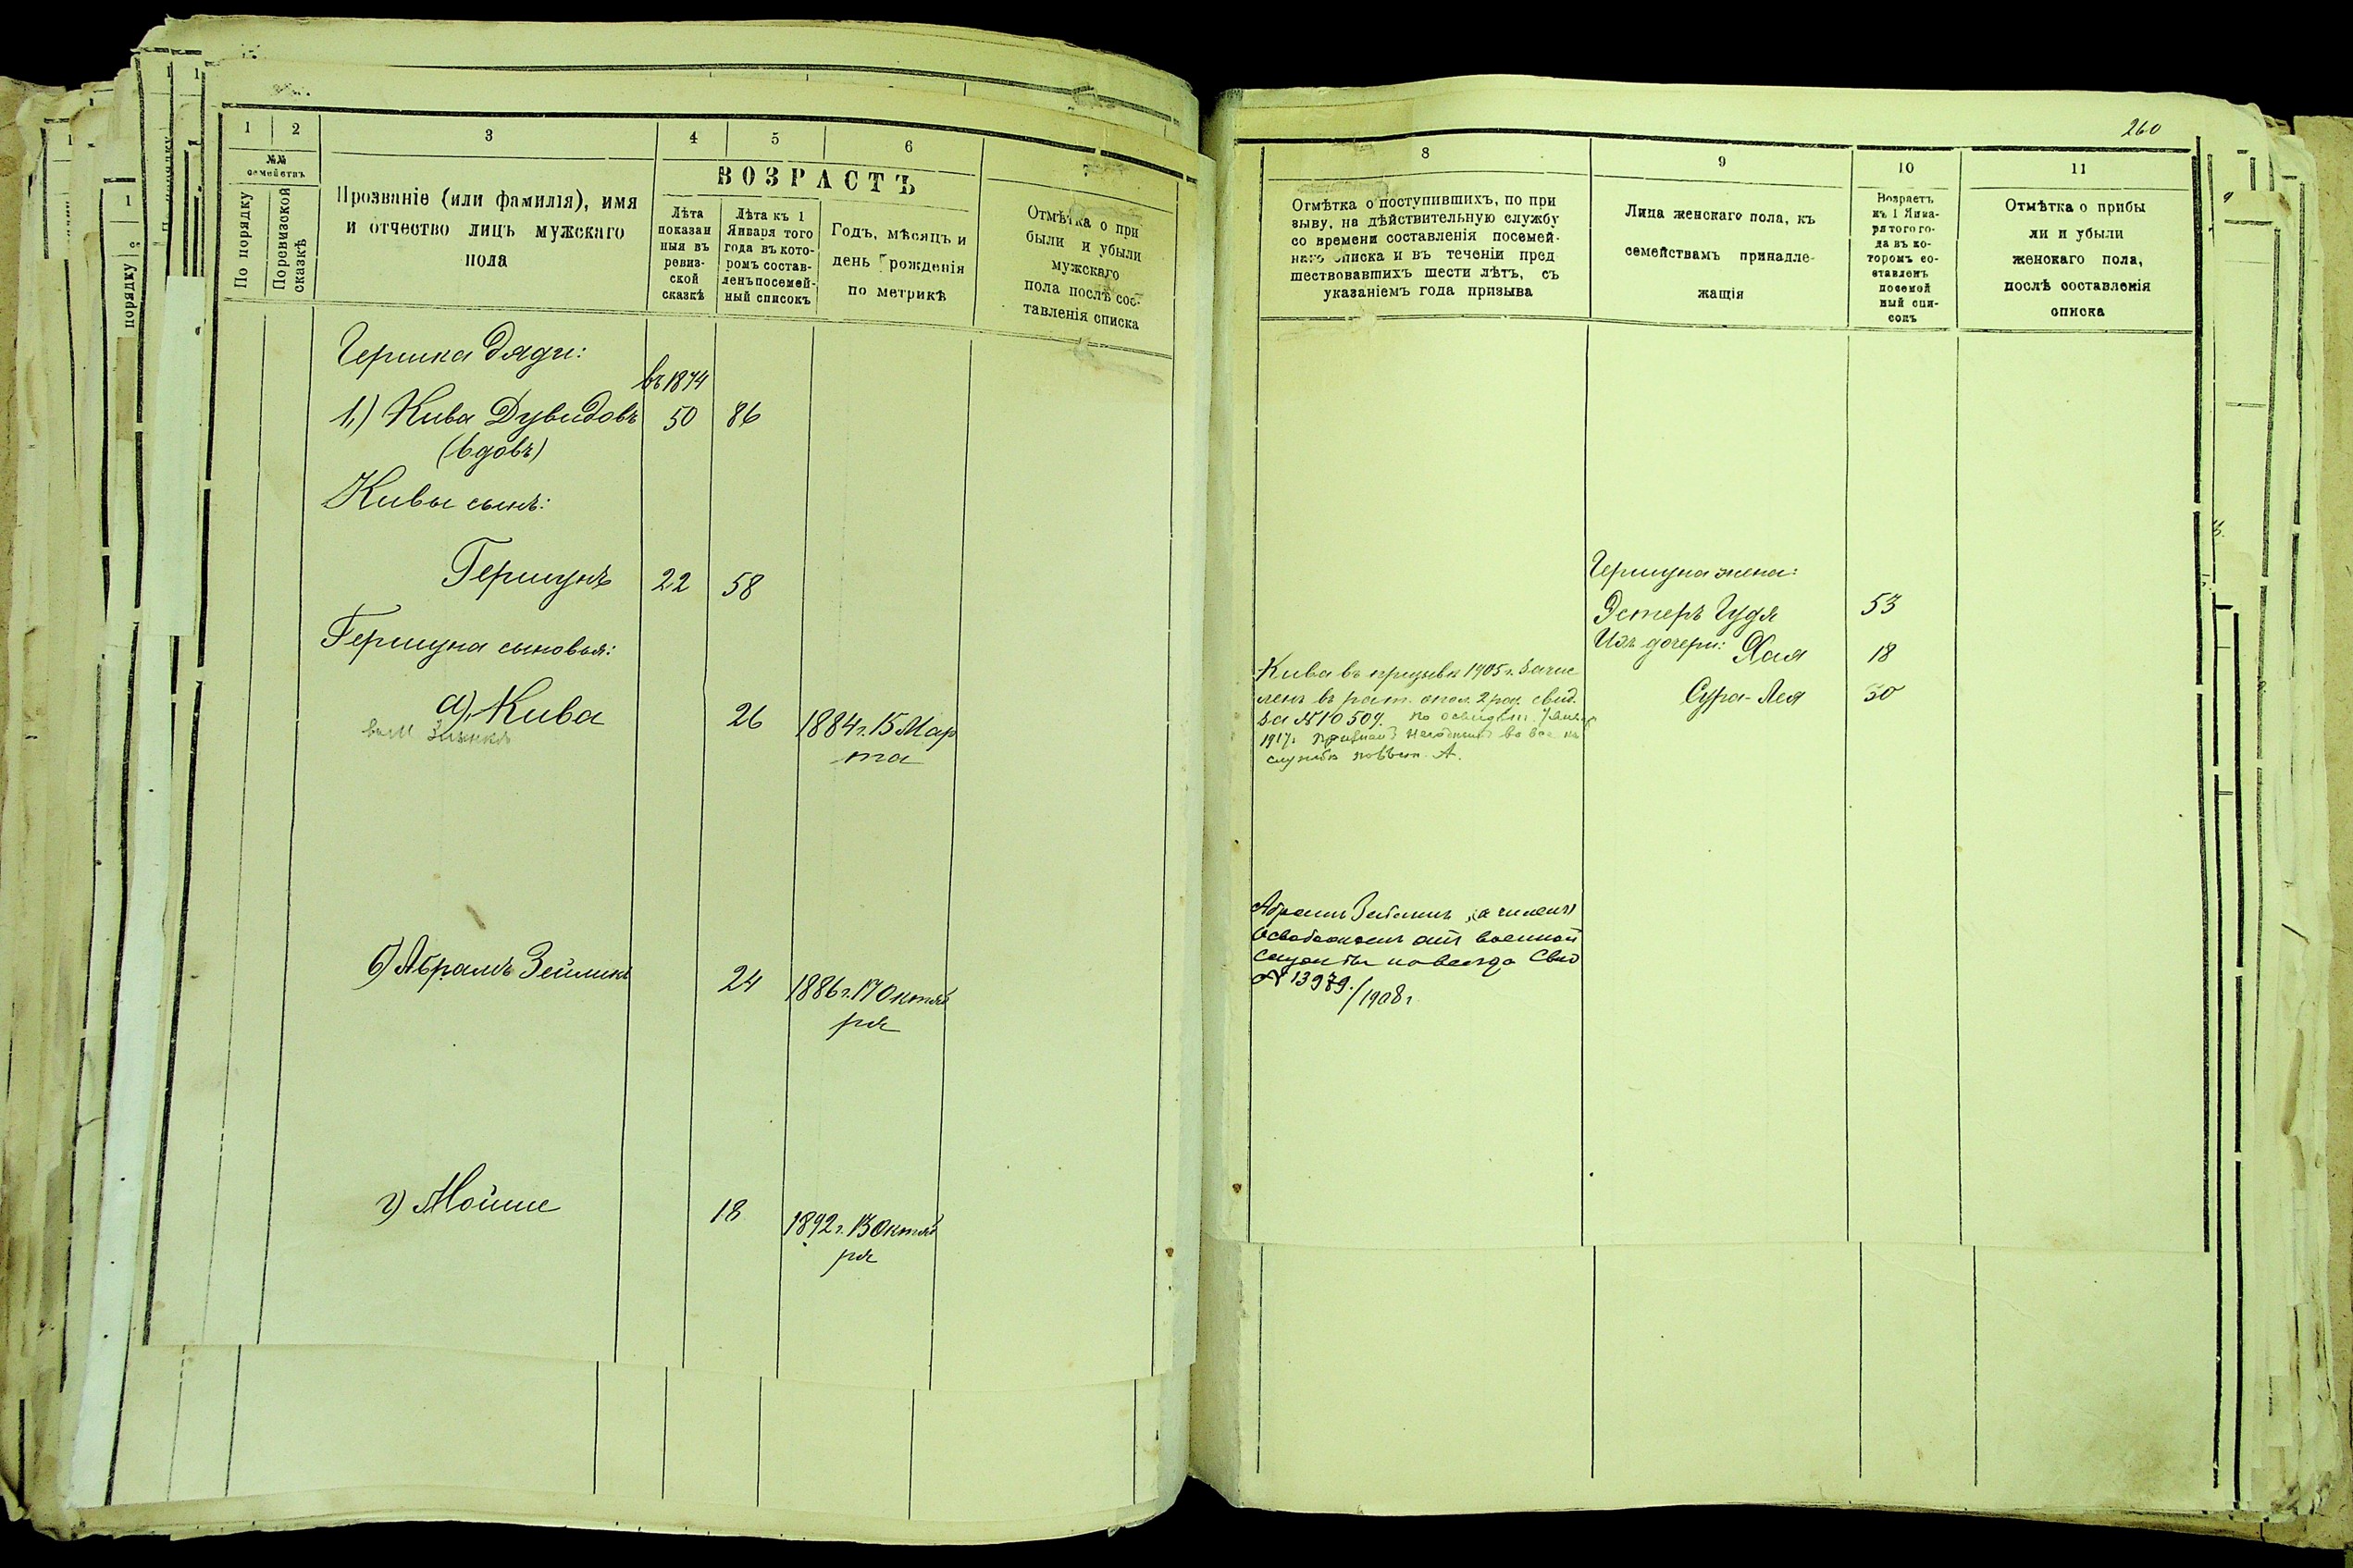 1
2
3
4
5
6
№№
семействъ
По порядку
По ревизской
сказкѣ
Прозваніе (или фамилія), имя
и отчество лицъ мужскаго
пола
ВОЗРАСТЪ
Лѣта
показан
ныя въ
ревиз-
ской
сказкѣ
Лѣта къ 1
Января того
года въ кото-
ромъ состав-
ленъ посемей-
ный списокъ
Годъ, мѣсяцъ и
день рожденія
по метрикѣ
7
Отмѣтка о при
были и убыли
мужскаго
пола послѣ сос-
тавленія списка
Гершка дяди:
въ 1874
1,) Кива Дувидовъ 50 86
(вдовъ)
Кивы сынъ:
Гершунъ 22 58
Гершуна сыновья:
а), Кива 26 1884 г. 15 Мар
та
б) Абрамъ Зейликъ 24 1886 г. 17 Октяб
ря
г) Мойше 18 1892 г. 13 Октяб
ря
260
8
9
10
11
Отмѣтка о поступившихъ, по при
зыву, на дѣйствительную службу
со времени составленія посемей-
наго списка и въ теченіи пред
шествовавшихъ шести лѣтъ, съ
указаніемъ года призыва
Лица женскаго пола, къ
семействамъ принадле-
жащія
Возрастъ
къ 1 Янва-
ря того го-
да въ ко-
торомъ со-
ставленъ
посемей
ный спи-
сокъ
Отмѣтка о прибы
ли и убыли
женскаго пола,
послѣ составленія
списка
Гершуна жена:
Эстеръ Гудя 53
Ихъ дочери: Хая 18
Сура-Лея 30
Кива въ призывѣ 1905 г. зачис
ленъ въ рат. опол. 2 раз. свид.
за № 10509. По освидѣт.
1917 г. признанъ
службѣ
Абрамъ Зейликъ
Освобожденъ отъ военной
службы навсегда Свид
№ 13979./1908 г.